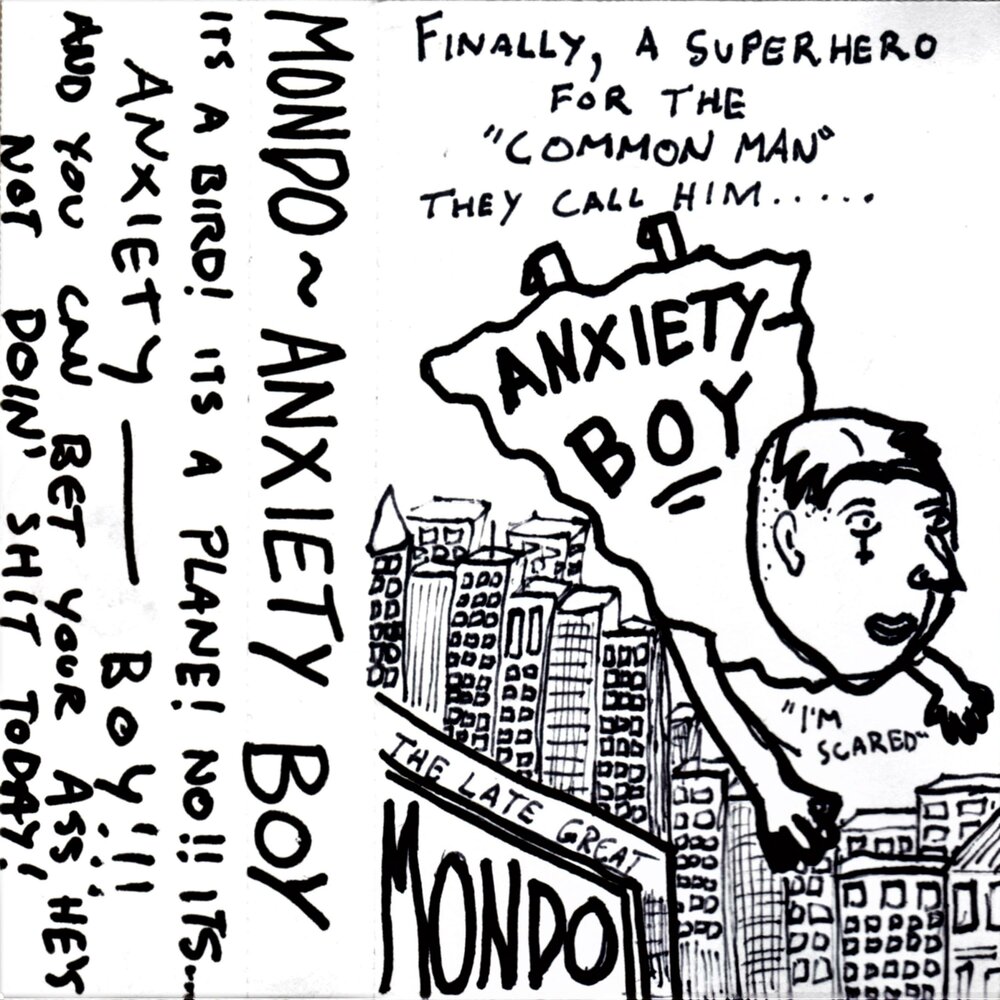 FINALLY, A SUPERHERO
FOR THE
"COMMON MAN"
THEY CALL HIM.....
ANXIETY
BOY
"I'M
SCARED"
THE LATE GREAT
MONDO
MONDO ~ ANXIETY BOY
ITS A BIRD! ITS A PLANE! NO!! ITS....
ANXIETY — BOY!!!
AND YOU CAN BET YOUR ASS HE'S
NOT DOIN' SHIT TODAY!